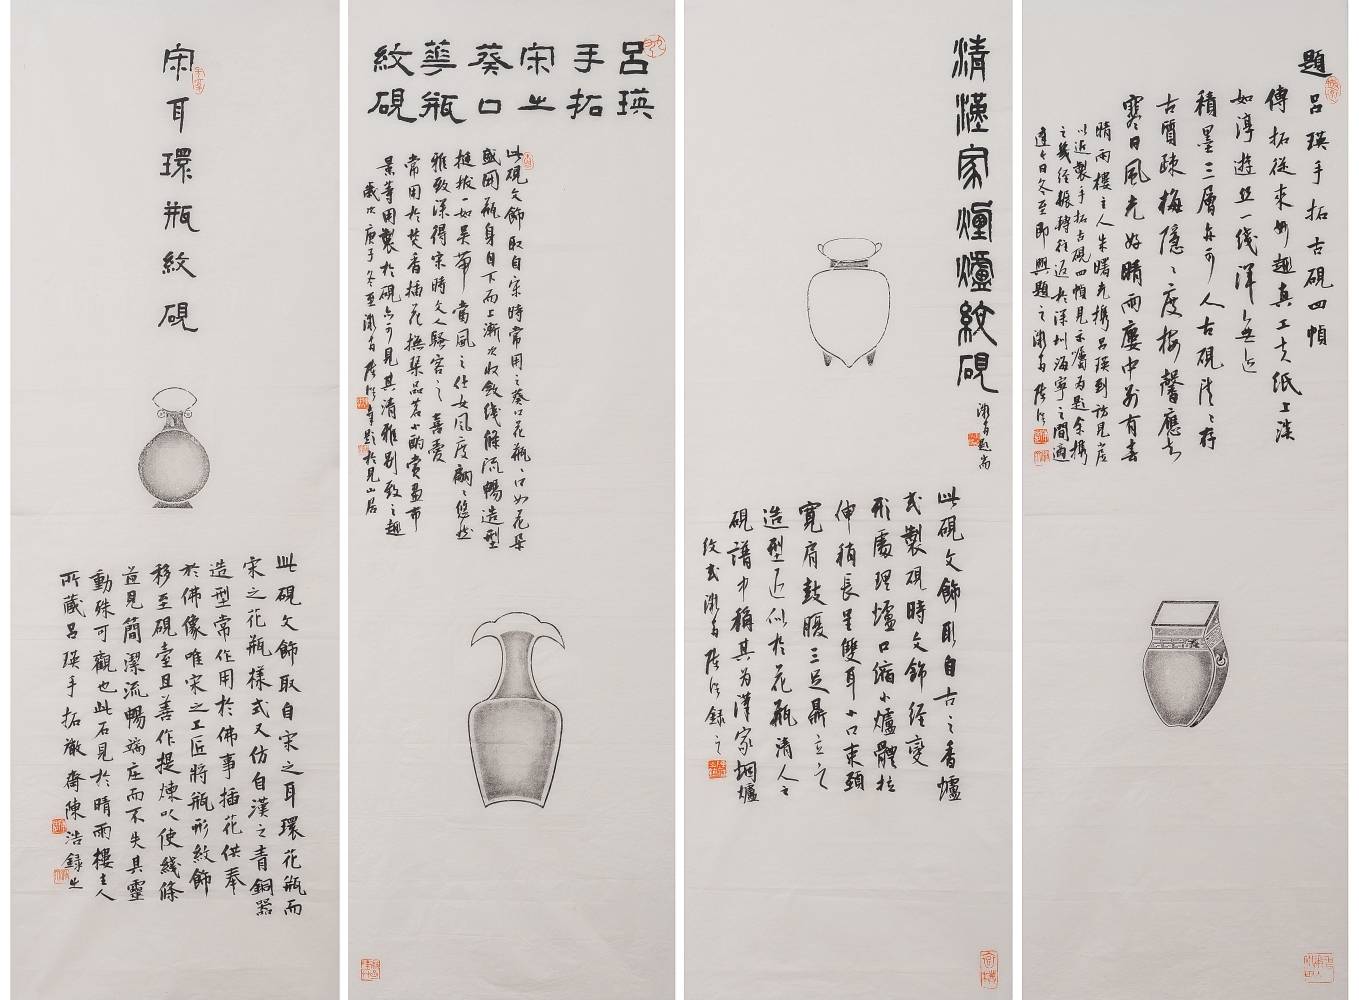 宋耳環瓶紋硯
此硯文飾取自宋之耳環花瓶而
宋之花瓶樣式又仿自漢之青銅器
造型常作用於佛事插花供奉
於佛像唯宋之工匠將瓶形紋飾
移至硯臺且善作提煉以使綫條
益見簡潔流暢端庄而不失其靈
動殊可觀也此石見於晴雨樓主人
所藏呂瑛手拓澂齋陳浩錄之
呂瑛
手拓
宋之
葵口
華瓶
紋硯
此硯文飾取自宋時常用之葵口花瓶瓶口如花朵
盛開瓶身自下而上漸次收斂綫條流暢造型
挺拔一如吴带當風之仕女風度翩翩悠然
雅致深得宋時文人騷客之喜愛
常用於焚香插花撫琴品茗小酌賞畫布
景等用製於硯亦可見其清雅别致之趣
歲次庚子冬至澂齋陳浩并題於見山居
清漢家烟爐紋硯
澂齋題耑
此硯文飾取自古之香爐
式製硯時文飾經變
形處理爐口縮小爐體拉
伸稍長呈雙耳小口束頸
寬肩鼓腹三足鼎立之
造型近似於花瓶清人之
硯譜中稱其为漢家烟爐
紋式澂齋陳浩錄之
題呂瑛手拓古硯四幀
傳拓從來妙趣真工夫紙上淡
如淳遊絲一綫渾無迹
積墨三層亦可人古硯
古質疎梅隱隱度
寒日風光好晴雨廔中别有春
晴雨樓主人朱曙光携呂瑛到訪見虚
以近製手拓古硯四幀見示囑为題余携
之幾經輾轉往返於深圳海寧之間適
逢今日冬至即興題之澂齋陳浩